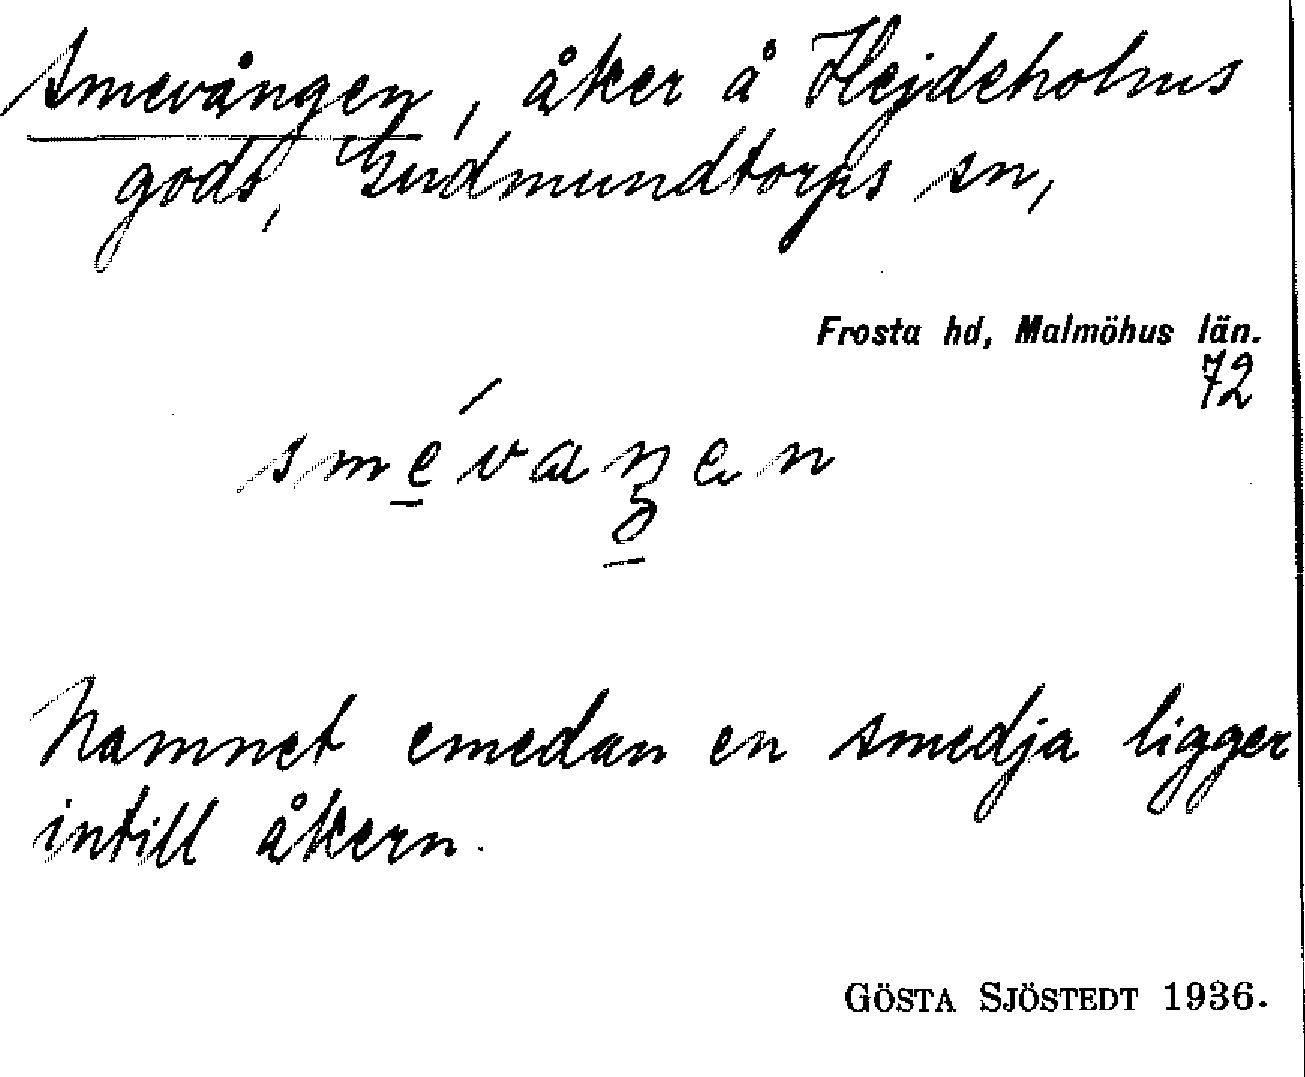 Smevången, åker å Hejdeholms
gods, Gudmundtorps sn,
Frosta hd, Malmöhus län.
72
Namnet emedan en smedja ligger
intill åkern.
GÖSTA SJÖSTEDT 1936.